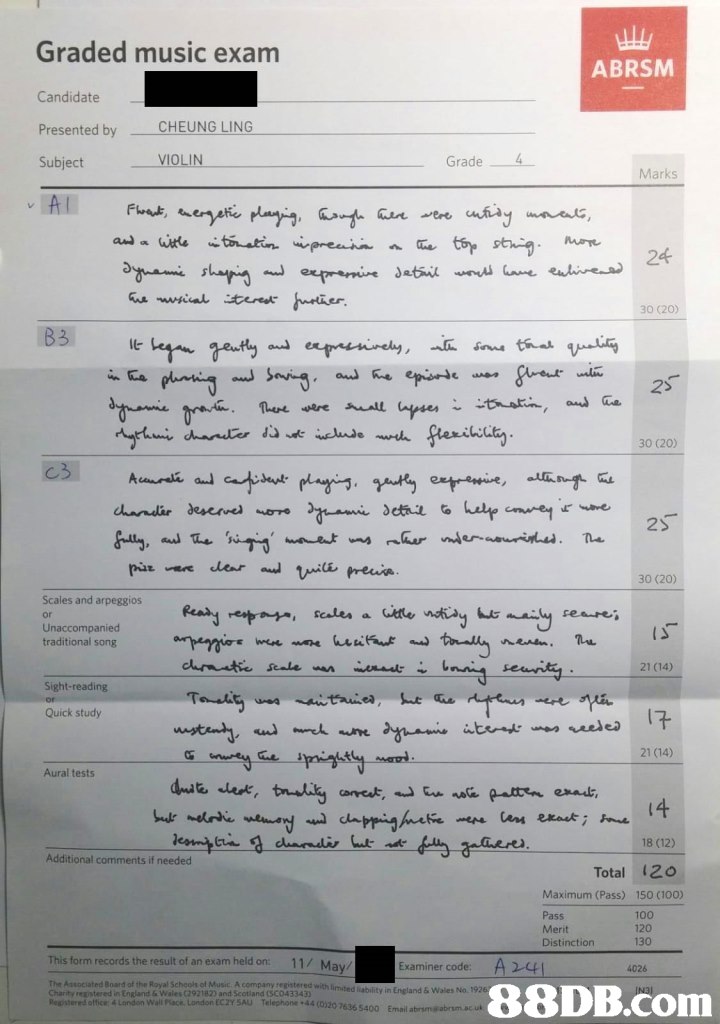 Graded music exam
ABRSM
Candidate
Presented by CHEUNG LING
Subject VIOLIN Grade 4
Marks
v A1
Fluent, energetic playing, though there were untidy moments,
and a little intonation imprecision on the top string. More
dynamic shaping and expressive detail would have enlivened
the musical interest further.
24
30 (20)
B3
It began gently and expressively, with some tonal quality
in the phrasing and bowing, and the episode was fluent with
dynamic growth. There were small lapses in intonation, and the
rhythmic character did not include much flexibility.
25
30 (20)
C3
Accurate and confident playing, gently expressive, although the
character deserved more dynamic detail to help convey it more
fully, and the 'singing' moment was rather under-nourished. The
pizz were clear and quite precise.
25
30 (20)
Scales and arpeggios
or
Unaccompanied
traditional song
Ready response, scales a little untidy but mainly secure;
arpeggios were more hesitant and tonally uneven. The
chromatic scale was inexact in bowing security.
15
21 (14)
Sight-reading
or
Quick study
Tonality was maintained, but the rhythms were often
unsteady, and much more dynamic interest was needed
to convey the sprightly mood.
17
21 (14)
Aural tests
Quite alert, tonality correct, and the note pattern exact,
but melodic memory and clapping/metre were less exact; some
description of character but not fully gathered.
14
18 (12)
Additional comments if needed
Total 120
Maximum (Pass) 150 (100)
Pass 100
Merit 120
Distinction 130
This form records the result of an exam held on: 11/ May/ Examiner code: A241 4026
The Associated Board of the Royal Schools of Music. A company registered with limited liability in England & Wales No. 1926
Charity registered in England & Wales (292182) and Scotland (SC043343)
Registered office: 4 London Wall Place, London EC2Y 5AU Telephone +44 (0)20 7636 5400 Email abrsm@abrsm.ac.uk
88DB.com